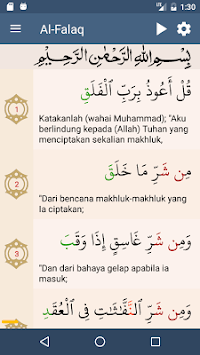 1:30
Al-Falaq
بِسْمِ اللَّهِ الرَّحْمَٰنِ الرَّحِيمِ
قُلْ أَعُوذُ بِرَبِّ الْفَلَقِ
1
Katakanlah (wahai Muhammad); "Aku
berlindung kepada (Allah) Tuhan yang
menciptakan sekalian makhluk,
مِن شَرِّ مَا خَلَقَ
2
"Dari bencana makhluk-makhluk yang
Ia ciptakan;
وَمِن شَرِّ غَاسِقٍ إِذَا وَقَبَ
3
"Dan dari bahaya gelap apabila ia
masuk;
وَمِن شَرِّ النَّفَّاثَاتِ فِي الْعُقَدِ